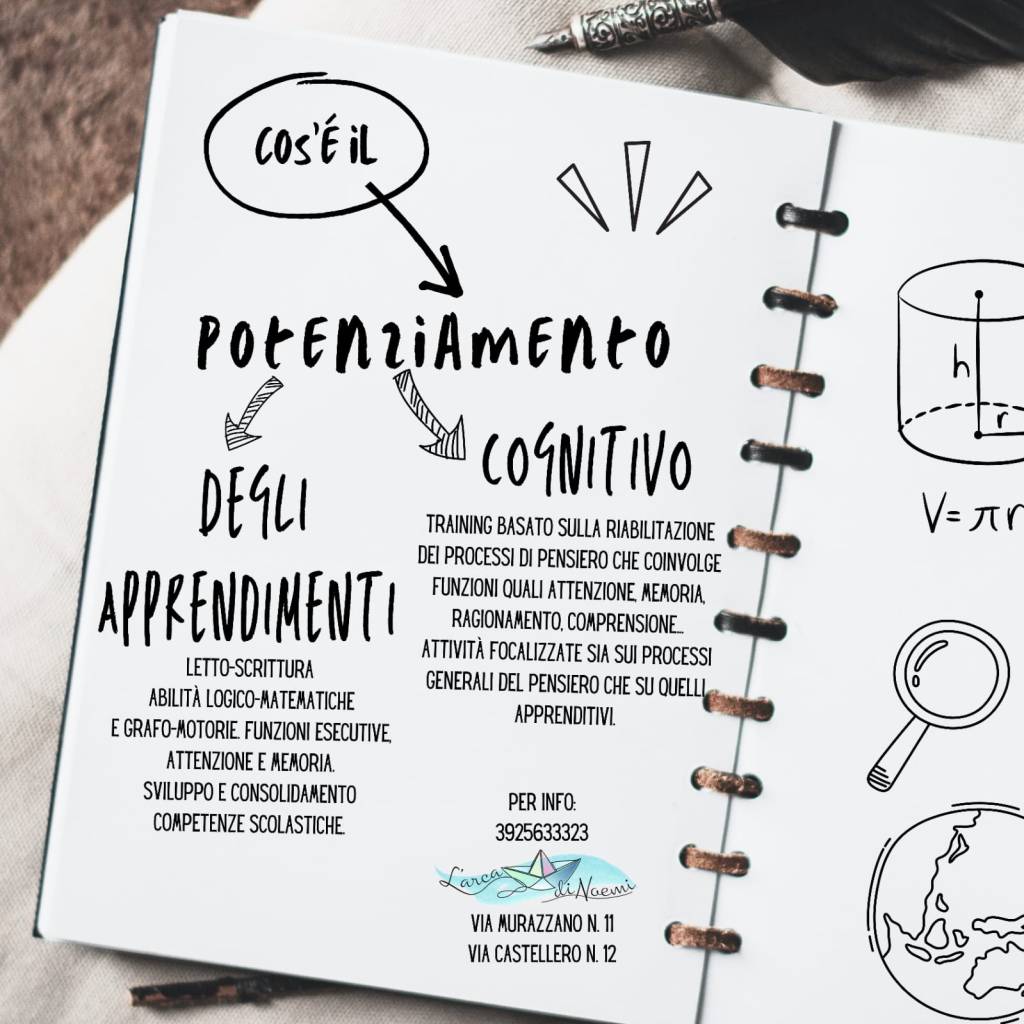 COS'É IL
POTENZIAMENTO
DEGLI
APPRENDIMENTI
LETTO-SCRITTURA
ABILITÀ LOGICO-MATEMATICHE
E GRAFO-MOTORIE. FUNZIONI ESECUTIVE,
ATTENZIONE E MEMORIA.
SVILUPPO E CONSOLIDAMENTO
COMPETENZE SCOLASTICHE.
COGNITIVO
TRAINING BASATO SULLA RIABILITAZIONE
DEI PROCESSI DI PENSIERO CHE COINVOLGE
FUNZIONI QUALI ATTENZIONE, MEMORIA,
RAGIONAMENTO, COMPRENSIONE...
ATTIVITÀ FOCALIZZATE SIA SUI PROCESSI
GENERALI DEL PENSIERO CHE SU QUELLI
APPRENDITIVI.
PER INFO:
3925633323
L'arca di Noemi
VIA MURAZZANO N. 11
VIA CASTELLERO N. 12
h
r
V= πr